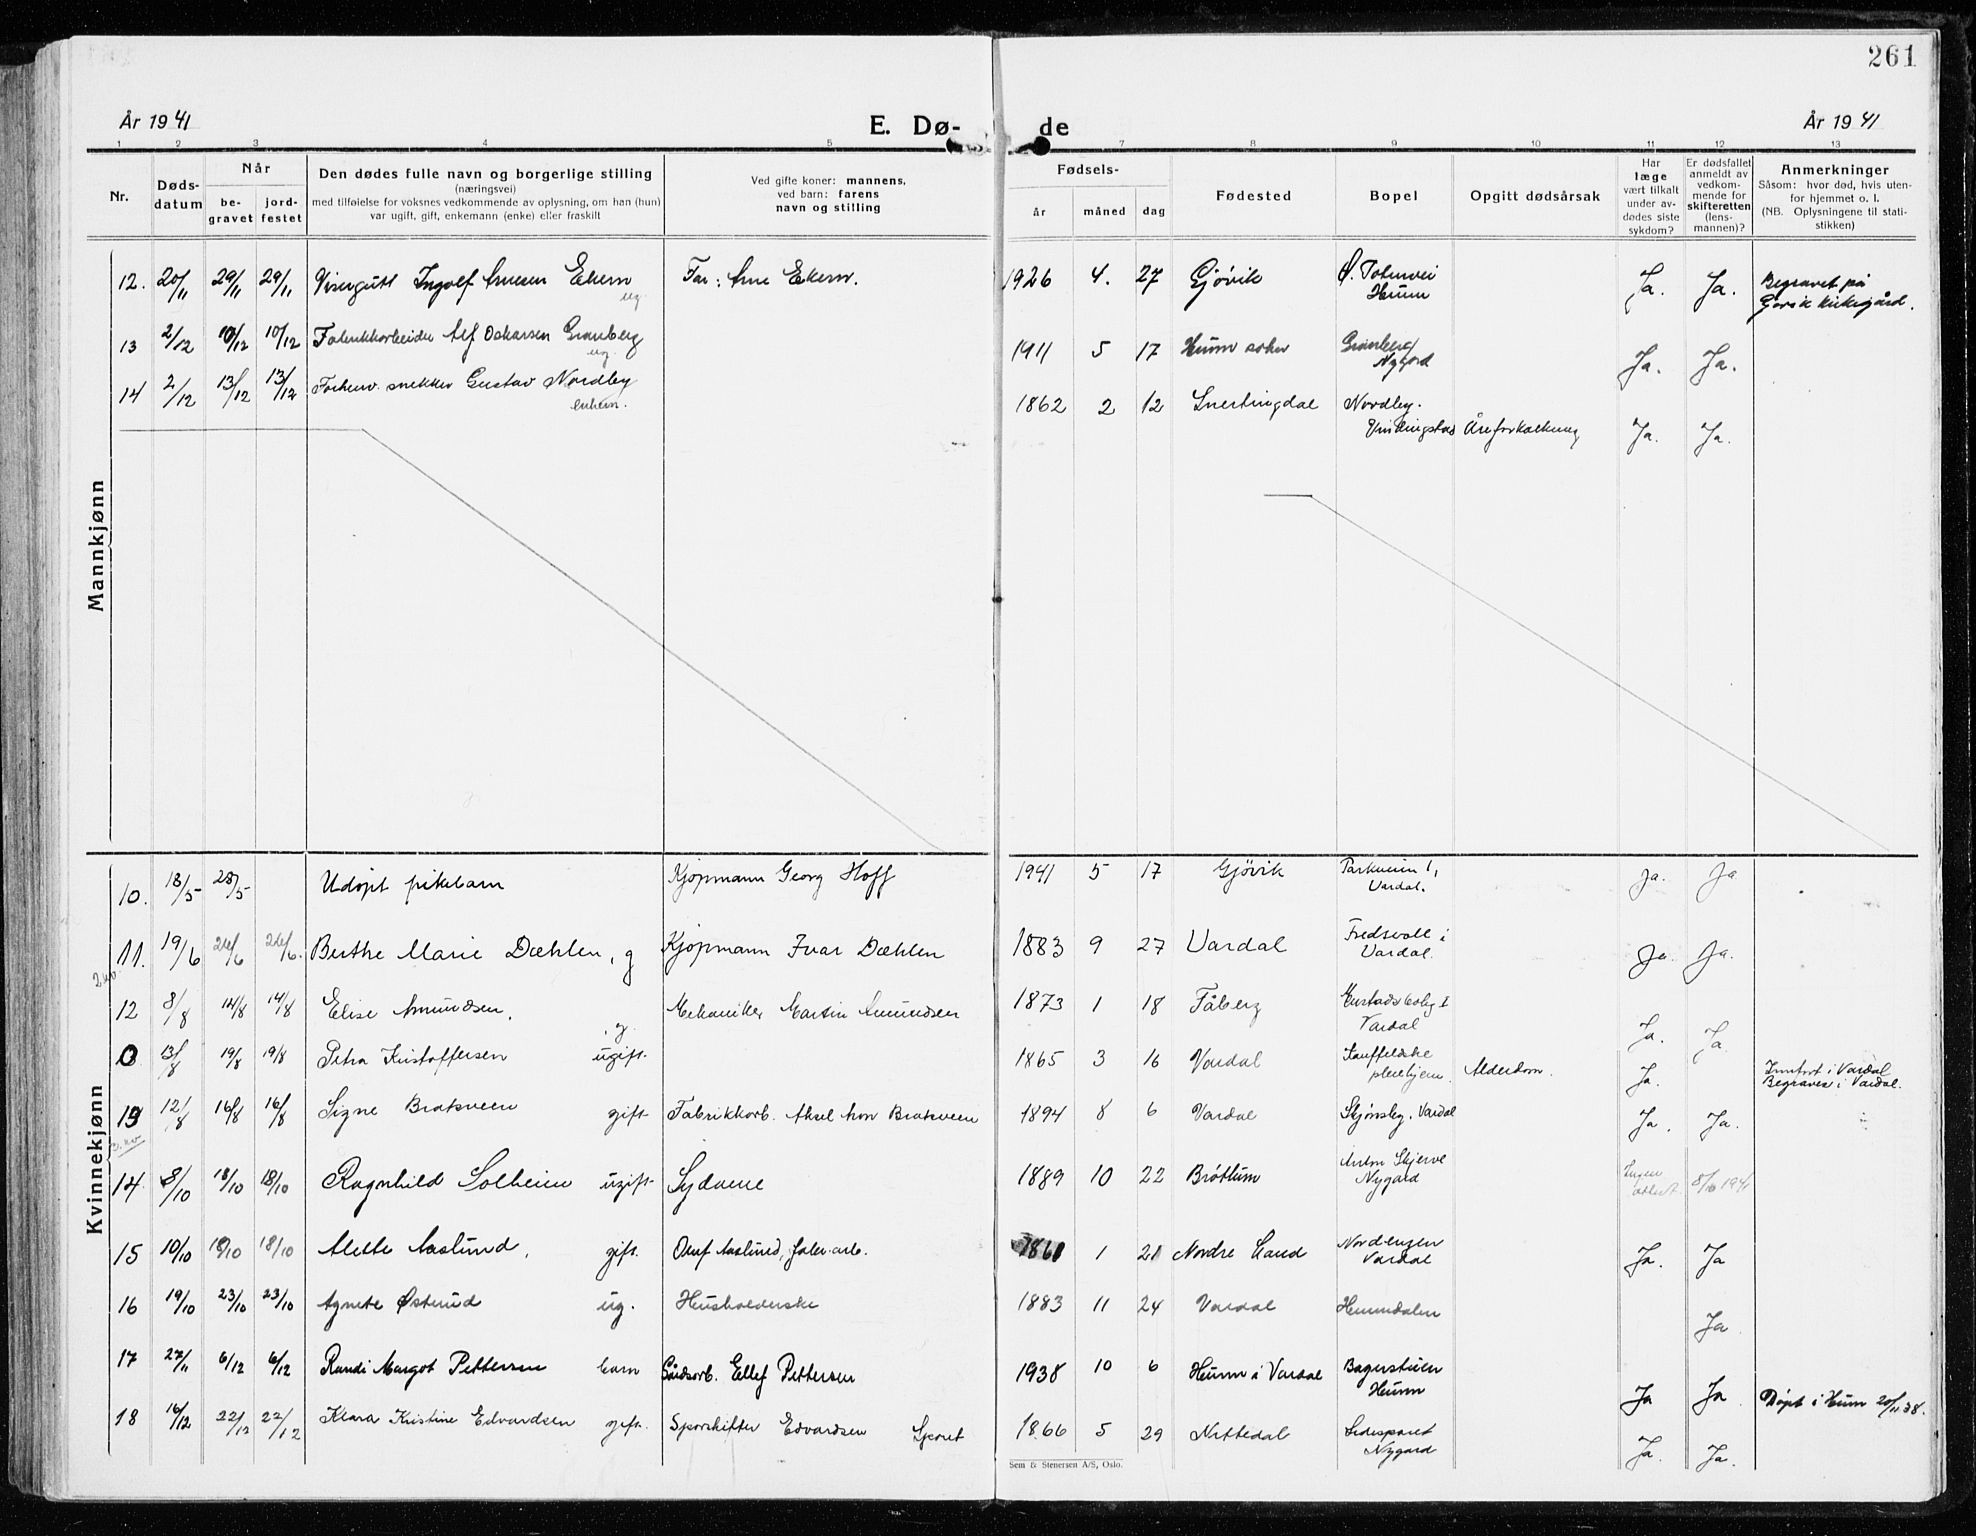 261
År 1941 E. Dø- de År 1941
1 2 3 4 5 7 8 9 10 11 12 13
Nr.
Døds-
datum
Når
be-
gravet
jord-
festet
Den dødes fulle navn og borgerlige stilling
(næringsvei)
med tilføielse for voksnes vedkommende av oplysning, om han (hun)
var ugift, gift, enkemann (enke) eller fraskilt
Ved gifte koner: mannens,
ved barn: farens
navn og stilling
Fødsels-
år
måned
dag
Fødested
Bopel
Opgitt dødsårsak
Har
læge
vært tilkalt
under av-
dødes siste
sykdom?
Er dødsfallet
anmeldt av
vedkom-
mende for
skifteretten
(lens-
mannen)?
Anmerkninger
Såsom: hvor død, hvis uten-
for hjemmet o. l.
(NB. Oplysningene til stati-
stikken)
Mannkjønn
12. 20/11 29/11 29/11 Visergutt Ingolf Arnesen Ekern ug. Far: Arne Ekern. 1926 4. 27 Gjøvik Ø. Totenvei Hunn Ja. Ja. Begravet på
Gjøvik kirkegård.
13 2/12 10/12 10/12 Fabrikkarbeider Alf Oskarsen Granberg ug. 1911 5 17 Hunn sokn Granberg Nygard Ja. Ja.
14 2/12 13/12 13/12 Forhenv. snekker Gustav Nordby enkem. 1862 2 12 Snertingdal Nordby. Vindingstad Åreforkalkning Ja. Ja.
Kvinnekjønn
10. 18/5 28/5 Udøpt pikebarn Kjøpmann Georg Hoff 1941 5 17 Gjøvik Parkveien 1, Vardal. Ja. Ja
11. 19/6 26/6 26/6. Berthe Marie Dæhlen, g Kjøpmann Ivar Dæhlen 1883 9 27 Vardal Fredsvoll i Vardal. Ja. Ja.
2. kv.
12 8/8 14/8 14/8 Elise Amundsen, g. Mekaniker Martin Amundsen 1873 1 18 Fåberg Vardal Ja. Ja
0 13/8 19/8 19/8 Petra Kristoffersen ugift. 1865 3 16 Vardal Kauffeldtske pleiehjem. Alderdom. Ja. Innført i Vardal
Begraves i Vardal.
13 12/8 16/8 16/8 Signe Bratsveen gift Fabrikkarb. Aksel Bratsveen 1894 8 6 Vardal Skjønsby, Vardal Ja. Ja.
3. kv
14 8/10 18/10 18/10 Ragnhild Solheim ugift Sydame 1889 10 22 Brøttum Anton Skjerve Nygard Ingen attest 8/10 1941
15 10/10 18/10 18/10 Alette Aaslund, gift. Oluf Aaslund, fabr. arb. 1861 1 21 Nordre Land Nordengen Vardal Ja. Ja
16 19/10 23/10 23/10 Agnete Østerud ug. Husholderske 1883 11 24 Vardal Hunndalen Ja
17 27/11 6/12 6/12 Randi Margot Pettersen barn Gårdsarb. Ellef Pettersen 1938 10 6 Hunn i Vardal Bagerstuen Hunn Ja Ja. Døpt i Hunn 20/11 38.
18 16/12 22/12 22/12 Klara Kristine Edvardsen gift. Sporskifter Edvardsen Sporet 1866 5 29 Nittedal Sidesporet Nygard Ja. Ja.
Sem & Stenersen A/S, Oslo.